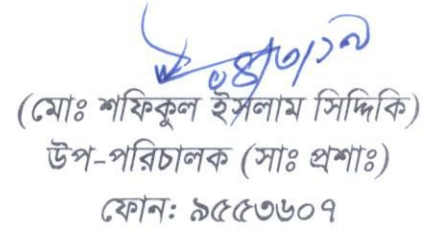 ০৪/৩/১৯
(মোঃ শফিকুল ইসলাম সিদ্দিকি)
উপ-পরিচালক (সাঃ প্রশাঃ)
ফোন: ৯৫৫৩৬০৭